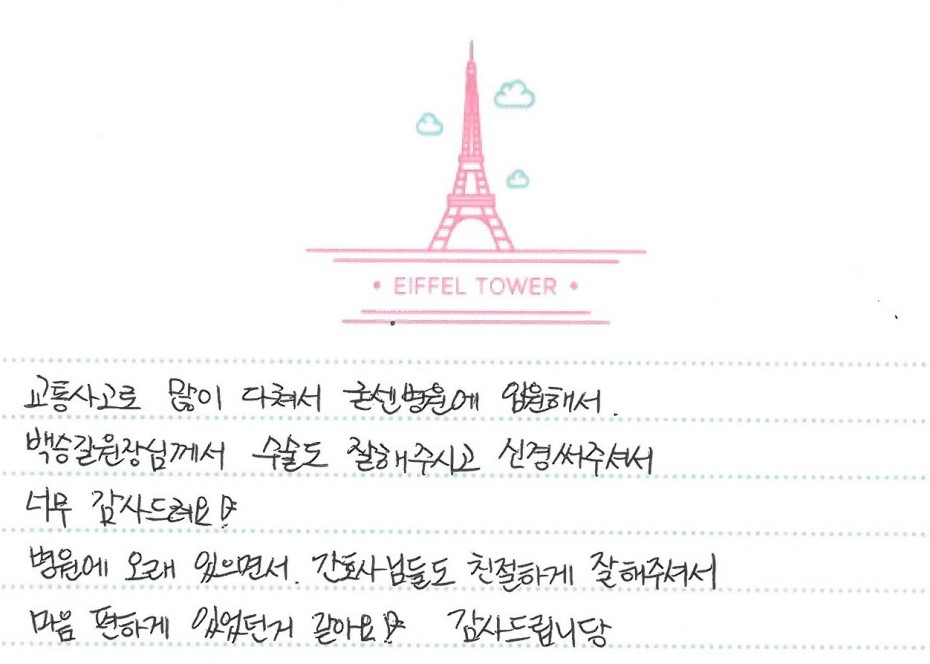 • EIFFEL TOWER •
교통사고로 많이 다쳐서 굳센병원에 입원해서.
백승길원장님께서 수술도 잘해주시고 신경써주셔서
너무 감사드려요!
병원에 오래 있으면서. 간호사님들도 친절하게 잘해주셔서
마음 편하게 있었던거 같아요! 감사드립니당